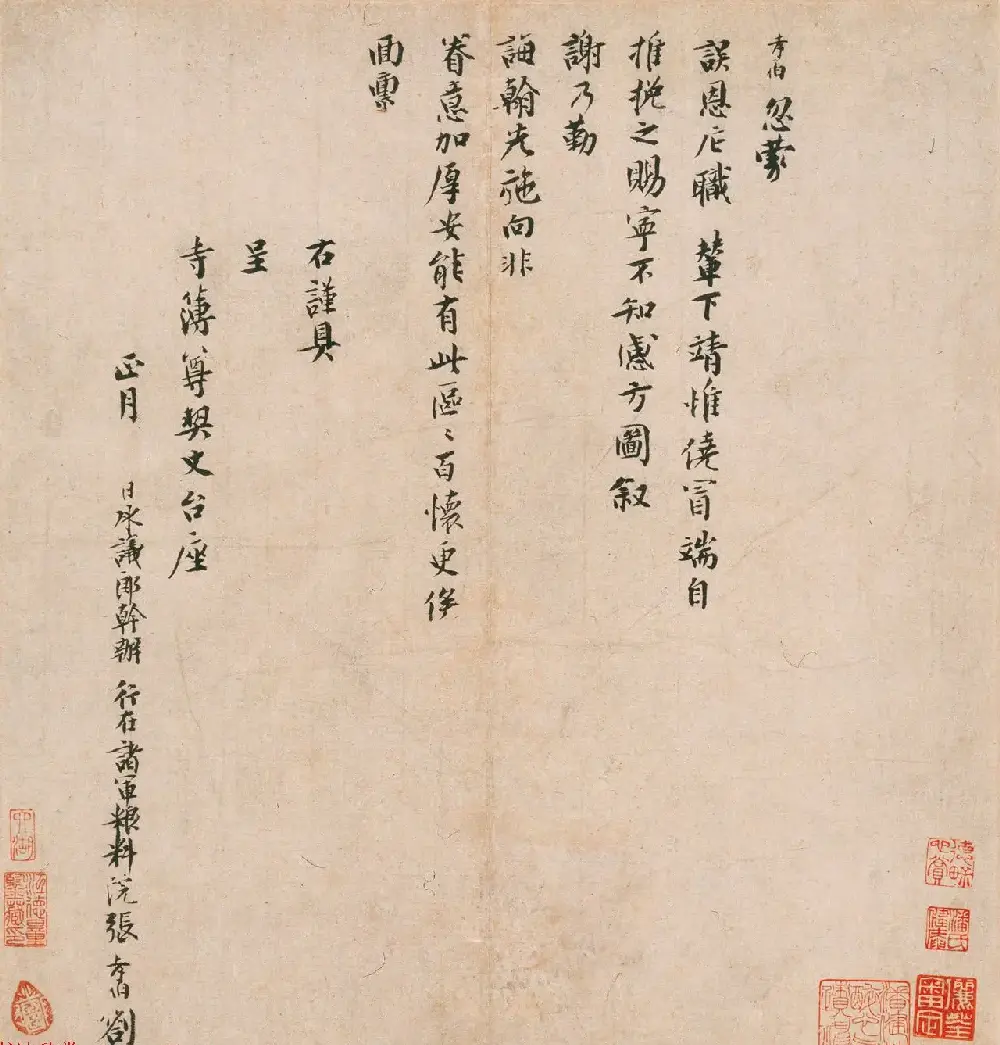 孝伯忽蒙
誤恩庀職 輦下靖惟僥冒端自
推挽之賜寧不知感方圖叙
謝乃勤
誨翰先施向非
眷意加厚安能有此區〻百懷更俟
面禀
右謹具
呈
寺簿尊契丈台座
正月 日承議郎幹辦 行在諸軍粮料院張 孝伯 劄